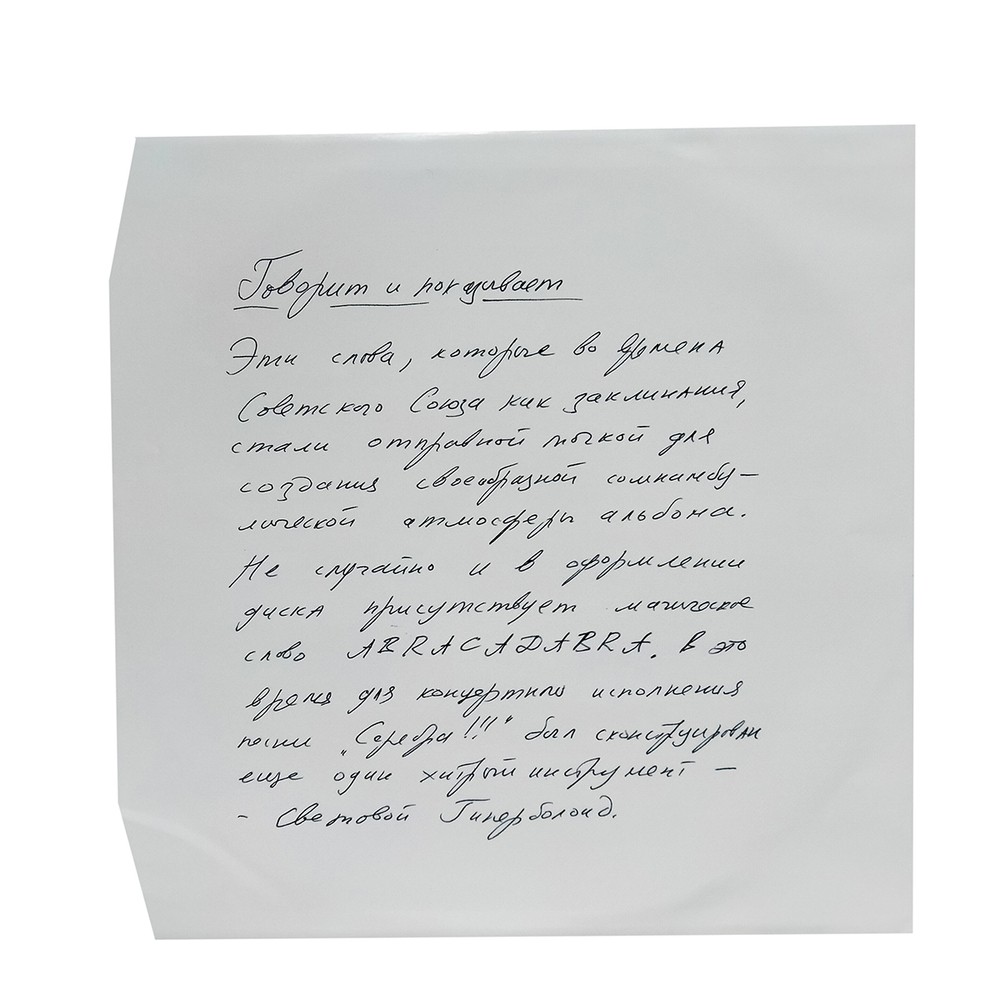 Говорит и показывает
Эти слова, которые во времена
Советского Союза как заклинания,
стали отправной точкой для
создания своеобразной сомнамбу-
лической атмосферы альбома.
Не случайно и в оформлении
диска присутствует магическое
слово ABRACADABRA. В это
время для концертного исполнения
песни „Серебра!!!" был сконструирован
еще один хитрый инструмент –
- Световой Гиперболоид.